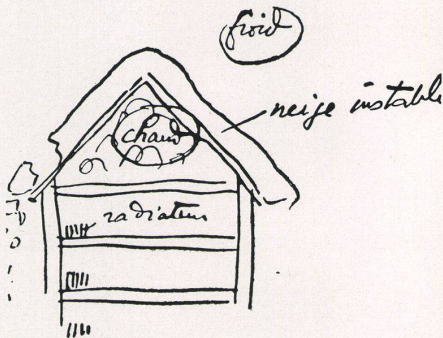 froid
neige instable
chaud
radiateurs